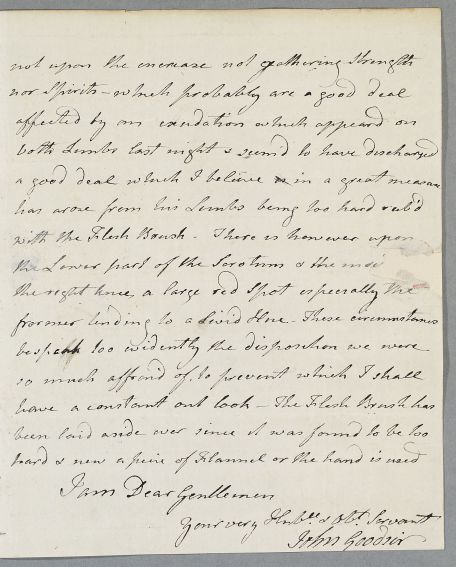 not upon the increase not gathering strength
nor Spirits - which probably are a good deal
affected by an exudation which appeard on
both Limbs last night & seem'd to have discharged
a good deal which I believe in a great measure
has arose from his Limbs being too hard rub'd
with the Flesh Brush - There is however upon
the Lower part of the Scrotum & the insi
the right knee a large red Spot especially the
former tending to a Livid Hue. These circumstances
bespeak too evidently the disposition we were
so much affraid of, to prevent which I shall
have a constant out look - The Flesh Brush has
been laid aside ever since it was found to be too
hard & now a piece of Flannel or the hand is used
I am Dear Gentlemen
your very Hubl. & Obt. Servant
John Goodsir